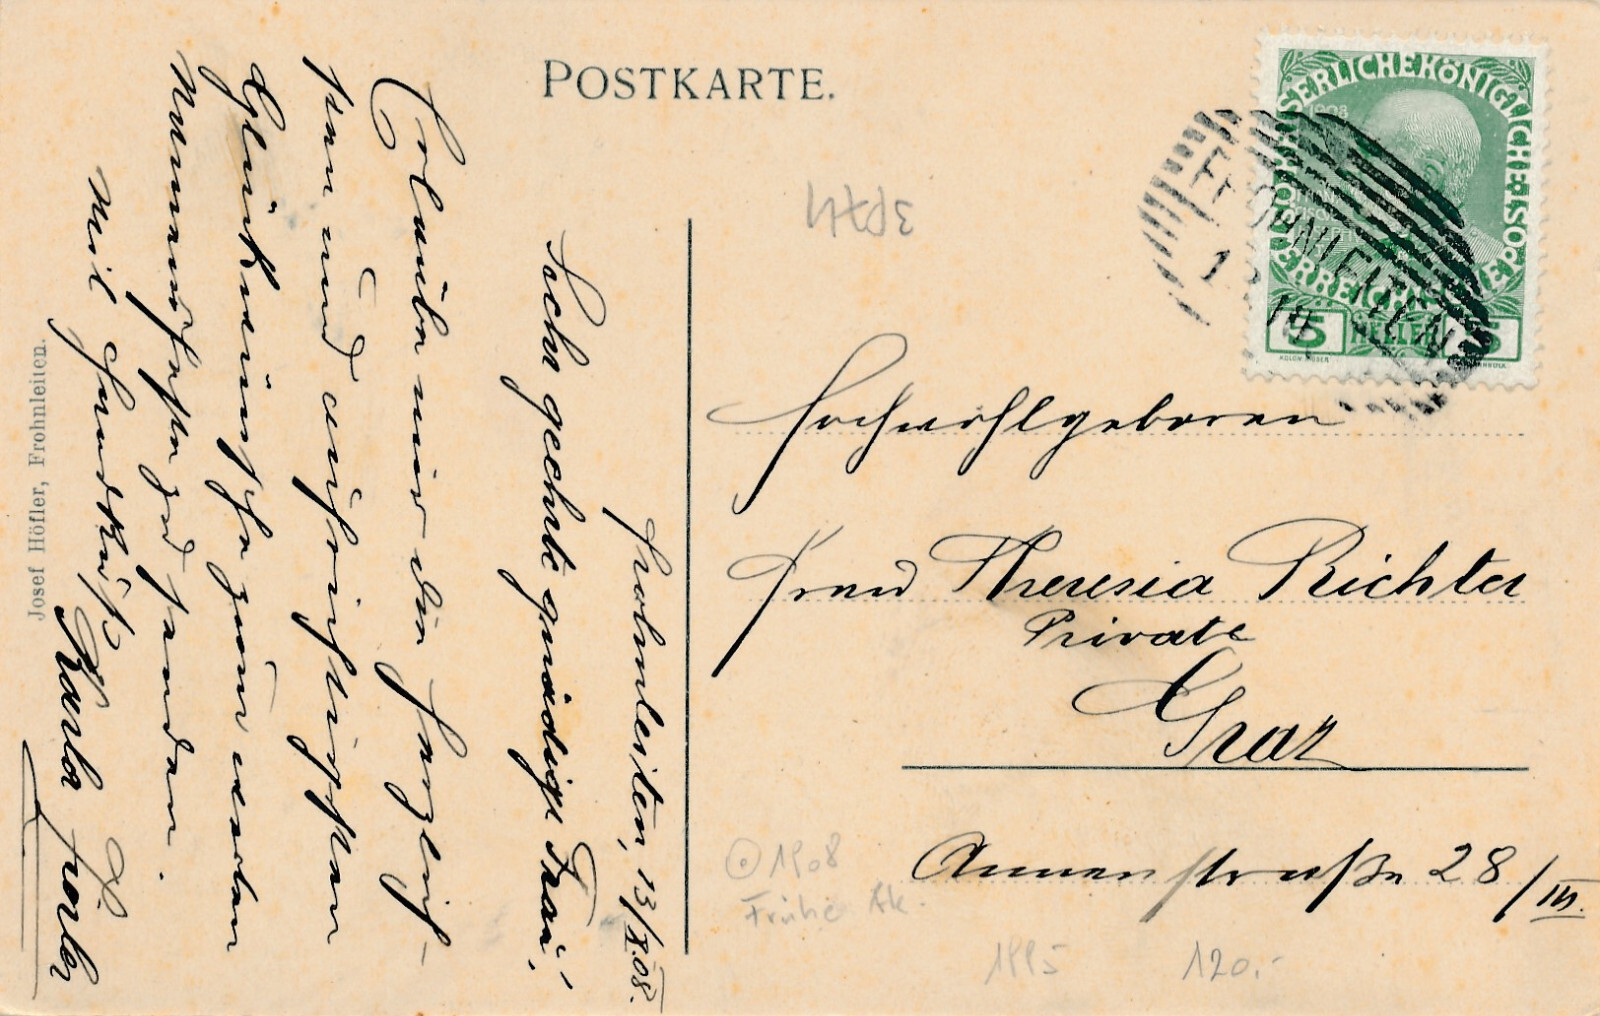 POSTKARTE.
KAISERLICHE KÖNIGLICHE ÖSTERREICHISCHE POST
1908
5 HELLER 5
FROHNLEITEN
Hochwohlgeboren
Frau Theresia Richter
Private
Graz
Annenstraße 28/III.
Frohnleiten, 13/X.08.
Sehr geehrte gnädige Frau!
Erlaube mir die herzlich-
sten und aufrichtigsten
Glückwünsche zum werten
Namensfeste zu senden.
Mit Handkuß
Karla
Josef Höfler, Frohnleiten.
1908
Frühe Ak.
1995
120.-